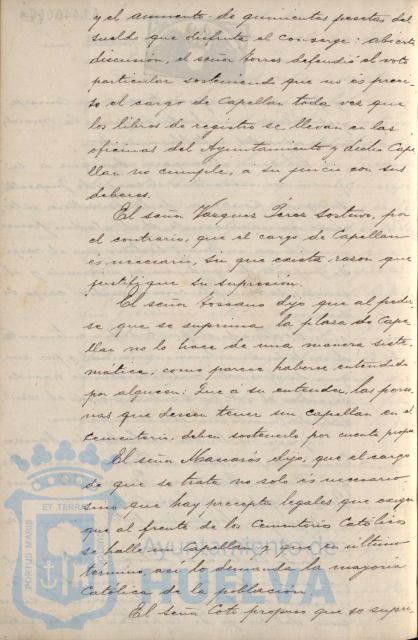 y el aumento de quinientas pesetas del
sueldo que disfruta el conserge: abierta
discusión, el señor Torres defendió el voto
particular sosteniendo que no és preci-
so el cargo de Capellan toda vez que
los libros de registro se llevan en las
oficinas del Ayuntamiento y dicho Cape-
llan no cumple, a su juicio con sus
deberes.
El señor Vazquez Perez sostuvo, por
el contrario, que el cargo de Capellan
és necesario, sin que exista razon que
justifique su supresión.
El señor dijo que al pedir-
se que se suprima la plaza de Cape-
llan no lo hace de una manera siste-
mática, como parece haberse entendido
por alguien: Que á su entender, las perso-
nas que deseen tener un capellan en el
cementerio, deben sostenerlo por cuenta propia
El señor Mascarós dijo, que el cargo
de que se trata no solo és necesario
sino que hay preceptos legales que exigen
que al frente de los Cementerios Católicos
se halle un capellan, y que en último
termino así lo demanda la mayoria
Católica de la poblacion.
El señor Coto propuso que se supri-
PORTUS MARIS ET TERRAE
Ayuntamiento de
HUELVA